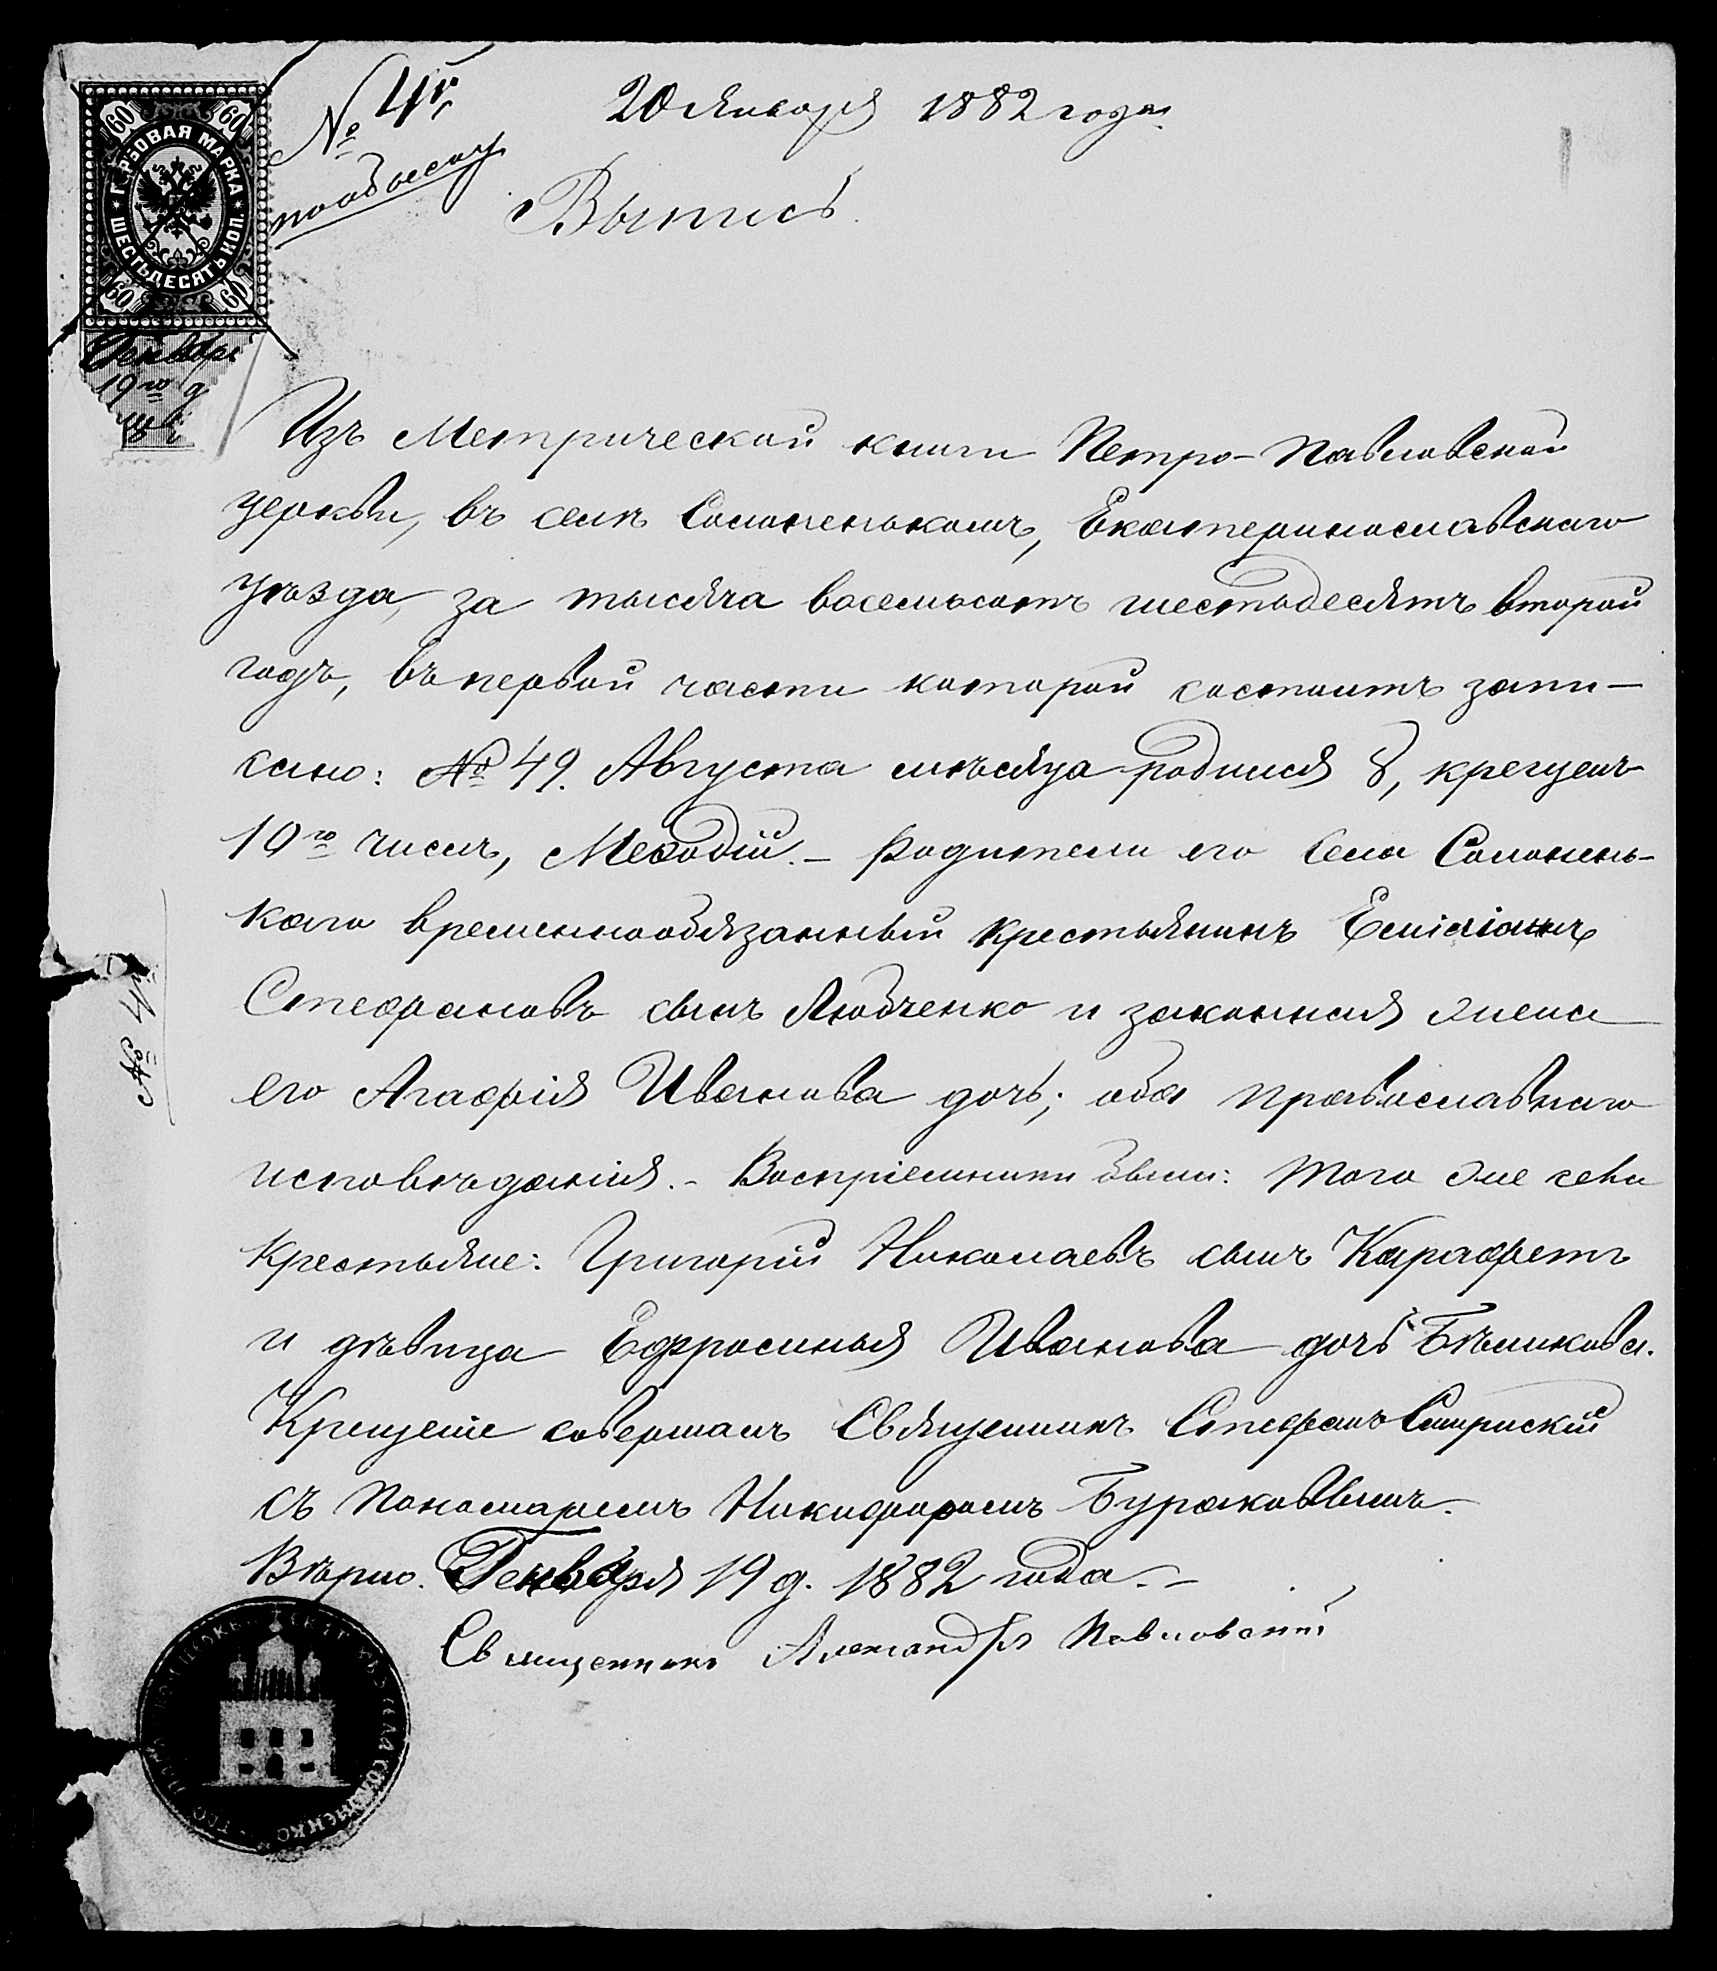 60 60
ГЕРБОВАЯ МАРКА
ШЕСТЬДЕСЯТЬ КОП.
60 60
№
20 Января 1882 года
Выпись.
19го д
Изъ Метрической книги Петро-Павловской
церкви, въ селѣ Солоненькомъ, Екатеринославскаго
уѣзда, за тысяча восемьсотъ шестьдесятъ второй
годъ, въ первой части которой состоитъ запи-
сано: № 49. Августа мѣсяца родился 8, крещенъ
10го числъ, Меѳодій. – Родители его села Солонень-
каго временнообязанный крестьянинъ Емиліанъ
Стефановъ сынъ Любченко и законная жена
его Агафія Иванова дочь; оба православнаго
исповѣданія. – Воспріемники были: того же села
крестьяне: Григорій Николаевъ сынъ Карафетъ
и дѣвица Ефросинья Иванова дочь Бѣликова.
Крещеніе совершалъ Священникъ Стефанъ
съ Пономаремъ Никифоромъ Бураковымъ.
Вѣрно. Генваря 19 д. 1882 года. –
Священникъ Александръ Павловскій
№